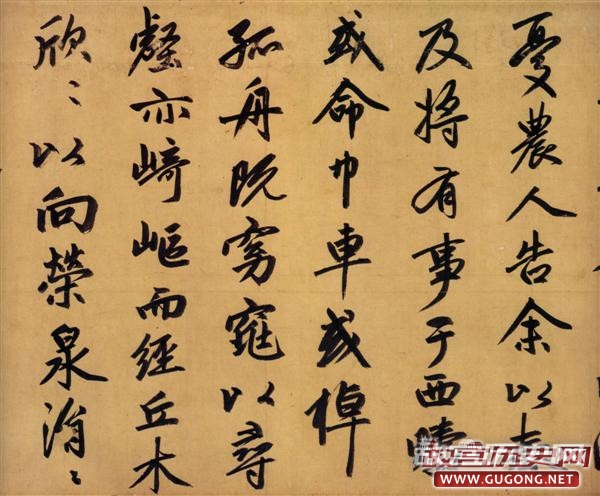 憂農人告余以春
及將有事于西疇
或命巾車或棹
孤舟既窈窕以尋
壑亦崎嶇而經丘木
欣〻以向榮泉涓〻
故宫历史网
WWW.GUGONG.NET